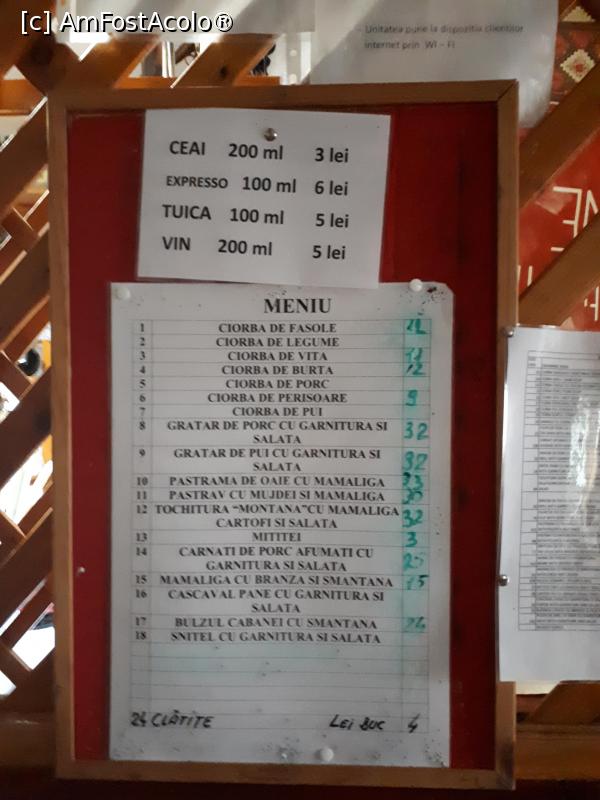 [c] AmFostAcolo®
- Unitatea pune la dispozitia clientilor
internet prin WI - FI
CEAI 200 ml 3 lei
EXPRESSO 100 ml 6 lei
TUICA 100 ml 5 lei
VIN 200 ml 5 lei
MENIU
1 CIORBA DE FASOLE
2 CIORBA DE LEGUME
3 CIORBA DE VITA
4 CIORBA DE BURTA 12
5 CIORBA DE PORC
6 CIORBA DE PERISOARE 9
7 CIORBA DE PUI
8 GRATAR DE PORC CU GARNITURA SI 32
SALATA
9 GRATAR DE PUI CU GARNITURA SI 32
SALATA
10 PASTRAMA DE OAIE CU MAMALIGA
11 PASTRAV CU MUJDEI SI MAMALIGA
12 TOCHITURA “MONTANA”CU MAMALIGA 32
CARTOFI SI SALATA
13 MITITEI 3
14 CARNATI DE PORC AFUMATI CU 25
GARNITURA SI SALATA
15 MAMALIGA CU BRANZA SI SMANTANA 15
16 CASCAVAL PANE CU GARNITURA SI
SALATA
17 BULZUL CABANEI CU SMANTANA 24
18 SNITEL CU GARNITURA SI SALATA
24 CLĂTITE LEI BUC 4